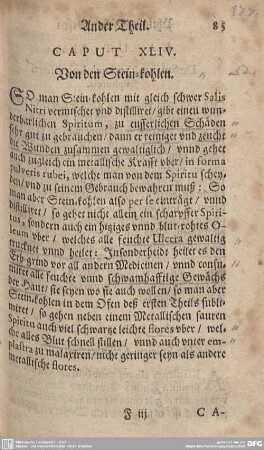 Ander Theil. 85
CAPUT XLIV.
Von den Stein-kohlen.
SO man Stein-kohlen mit gleich schwer Salis
Nitri vermischet vnd distilliret/ gibt einen wun-
derbarlichen Spiritum, zu eusserlichen Schäden
sehr gut zu gebrauchen/ dann er reiniget vnd zeucht
die Wunden zusammen gewaltiglich/ vnnd gehet
auch zugleich ein metallische Krafft vber/ in forma
pulveris rubei, welche man von dem Spiritu schey-
den/ vnd zu seinem Gebrauch bewahren muß: So
man aber Steinkohlen also per se einträgt/ vnnd
distilliret/ so gehet nicht allein ein scharpffer Spiri-
tus, sondern auch ein hitziges vnnd blut-rohtes O-
leum vber/ welches alle feuchte Ulcera gewaltig
trucknet vnnd heilet: Insonderheit heilet es den
Erbgrind vor allen andern Medicinen/ vnnd consu-
miret alle feuchte vnnd schwammhafftige Gewächs
der Haut/ sie seyen wo sie auch wollen/ so man aber
Steinkohlen in dem Ofen deß ersten Theils subli-
miret/ so gehen neben einem Metallischen sauren
Spiritu auch viel schwartze leichte flores vber/ wel-
che alles Blut schnell stillen/ vnnd auch vnter em-
plastra zu malaxiren/ nicht geringer seyn als andere
metallische flores.
F iij CA-